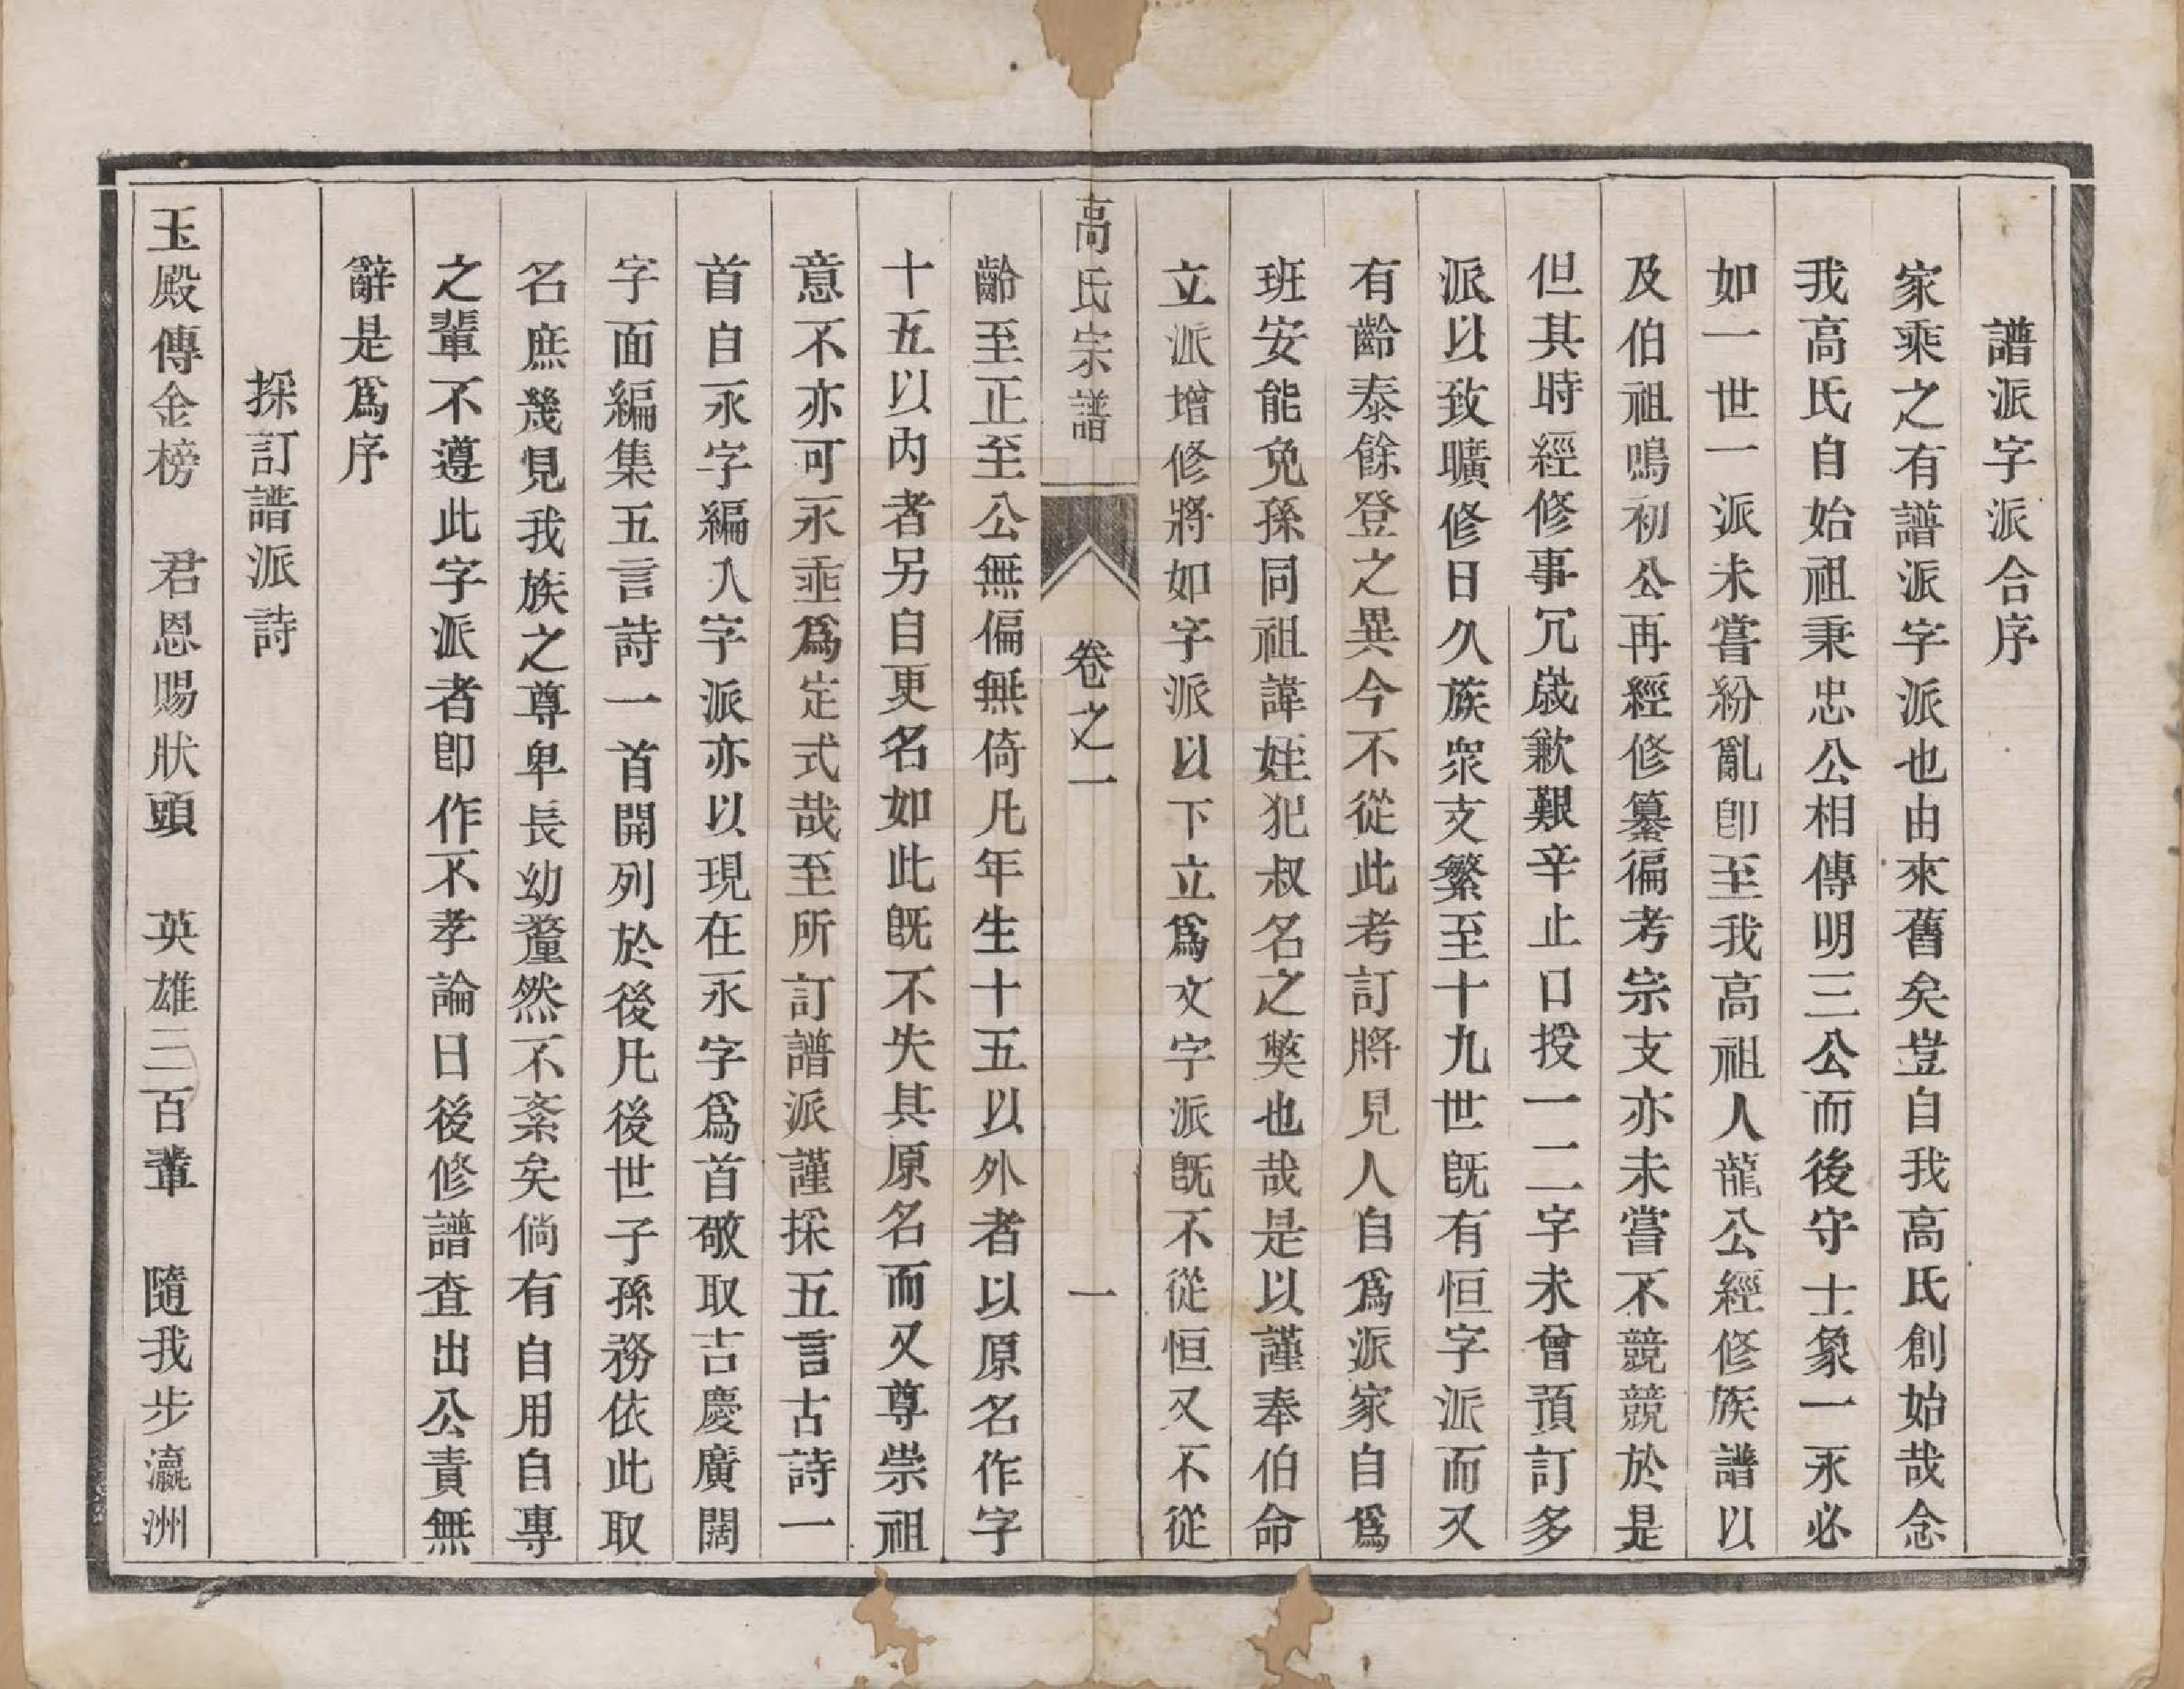 譜派字派合序
家乘之有譜派字派也由來舊矣豈自我高氏創始哉念
我高氏自始祖秉忠公相傳明三公而後守士象一永必
如一世一派未嘗紛亂卽至我高祖人龍公經修族譜以
及伯祖鳴初公再經修纂徧考宗支亦未嘗不競競於是
但其時經修事冗歲歉艱辛止口授一二字未曾預訂多
派以致曠修日久族眾支繁至十九世旣有恒字派而又
有齡泰餘登之異今不從此考訂將見人自爲派家自爲
班安能免孫同祖諱姪犯叔名之獘也哉是以謹奉伯命
立派增修將如字派以下立爲文字派旣不從恒又不從
高氏宗譜
卷之一
一
齡至正至公無偏無倚凡年生十五以外者以原名作字
十五以內者另自更名如此旣不失其原名而又尊崇祖
意不亦可永垂爲定式哉至所訂譜派謹採五言古詩一
首自永字編入字派亦以現在永字爲首敬取吉慶廣闊
字面編集五言詩一首開列於後凡後世子孫務依此取
名庶幾見我族之尊卑長幼釐然不紊矣倘有自用自專
之輩不遵此字派者卽作不孝論日後修譜查出公責無
辭是爲序
採訂譜派詩
玉殿傳金榜　君恩賜狀頭　英雄三百輩　隨我步瀛洲